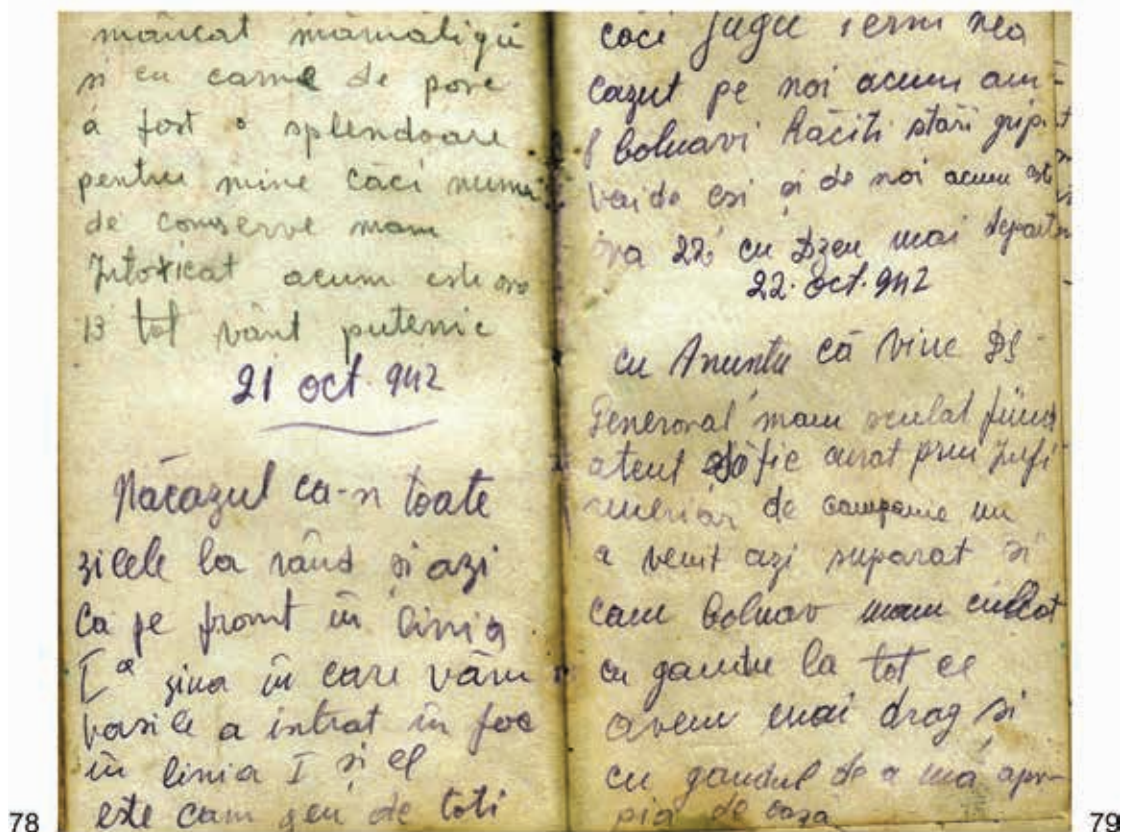 mâncat mămăligă
si cu carne de porc
a fost o splendoare
pentru mine căci numai
de conserve mam
Intoxicat acum este ora
13 tot vânt puternic
21 oct. 942
Năcazul ca-n toate
zilele la rând și azi
ca pe front în linia
I a ziua în care văru
Vasile a intrat în foc
în linia I și el
este cam greu de toti
78
căci frigu iernii nea
cazut pe noi acum am
bolnavi Răciti stări gripă
vai de esi și de noi acum este
ora 22 cu Dzeu mai departe
22. oct. 942
cu Anuntu că vine Ds
General mam sculat fiind
atent să fie curat prin Infi
rmeriar de companie nu
a venit azi suparat si
cam bolnav mam culcat
cu gandu la tot ce
avem mai drag si
cu gandul de a mă apro
pia de casa
79